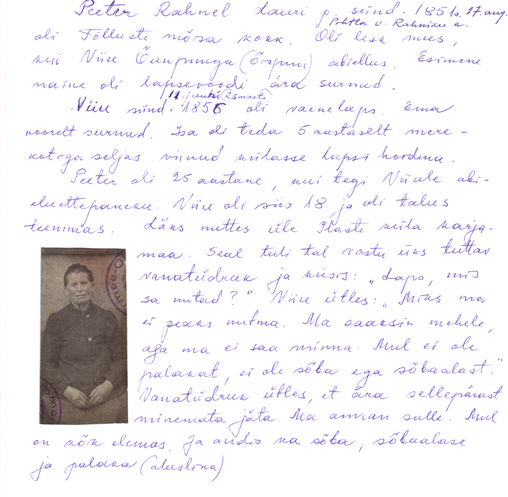 Peeter Rahnel Lauri p. sünd. 1851. 27 aug.
Pihtla v. Rahniku k.
oli Tõlluste mõisa kokk. Oli lesk mees,
kui Viiu Õunpuuga (Õispuu) abiellus. Esimene
naine oli lapsevoodi ära surnud.
11. juunil
Viiu sünd. 1856 oli vaenelaps. Ema
noorelt surnud. Isa oli teda 5 aastaselt mere-
kotiga seljas viinud külasse lapsi hoidma.
Peeter oli 25 aastane, kui tegi Viiule abi-
eluettepaneku. Viiu oli siis 18 ja oli talus
teenimas. Läks nuttes üle Ilaste küla karja-
maa. Seal tuli tal vastu üks tuttav
vanatüdruk ja küsis: „Laps, mis
sa nutad?" Viiu ütles: „Miks ma
ei peaks nutma. Ma saaksin mehele,
aga ma ei saa minna. Mul ei ole
palakat, ei ole sõba ega sõbaalast."
Vanatüdruk ütles, et ära sellepärast
minemata jäta. Ma annan sulle. Mul
on kõik olemas. Ja andis ka sõba, sõbaalase
ja palaka (aluslina)